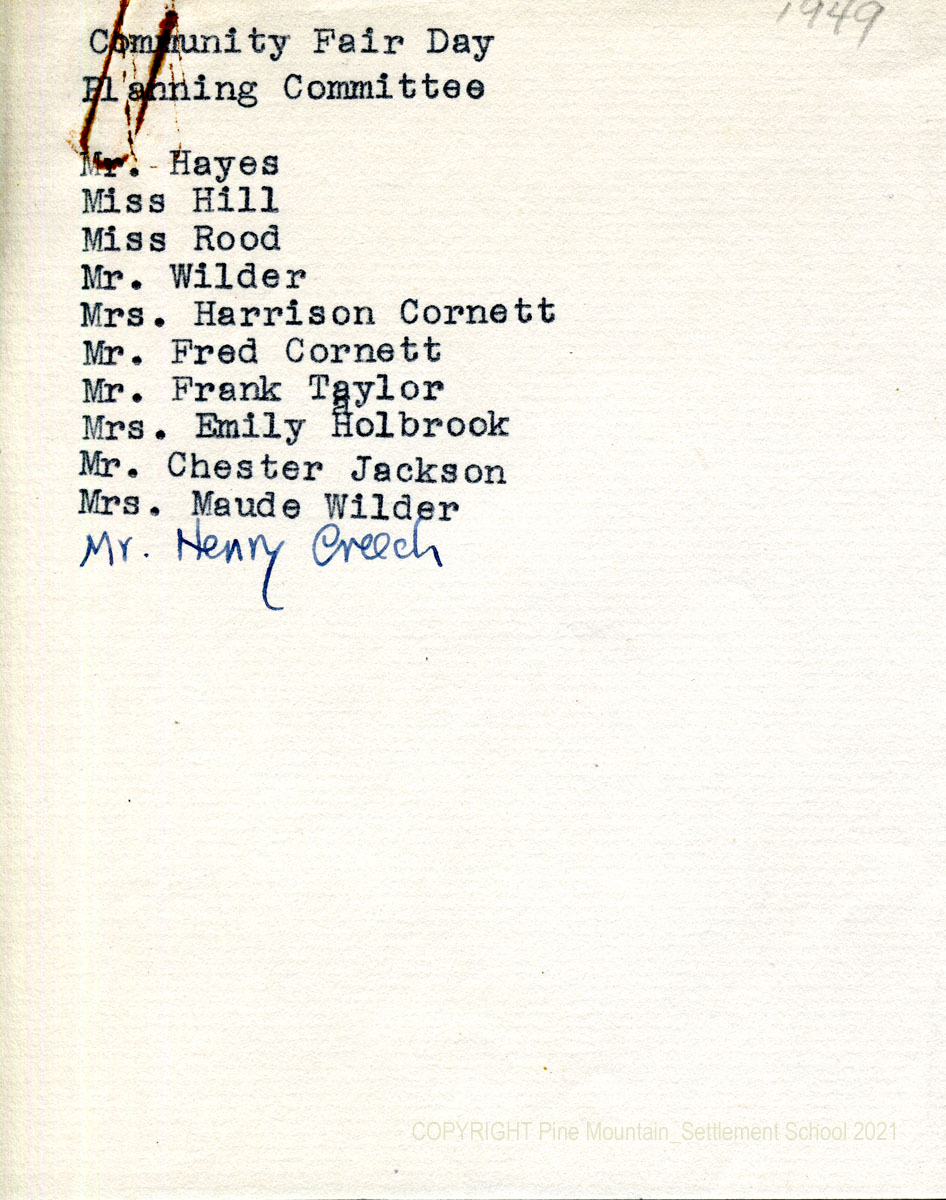 1949
Community Fair Day
Planning Committee
Mr. Hayes
Miss Hill
Miss Rood
Mr. Wilder
Mrs. Harrison Cornett
Mr. Fred Cornett
Mr. Frank Taylor
Mrs. Emily Holbrook
Mr. Chester Jackson
Mrs. Maude Wilder
Mr. Henry Creech
COPYRIGHT Pine Mountain_Settlement School 2021